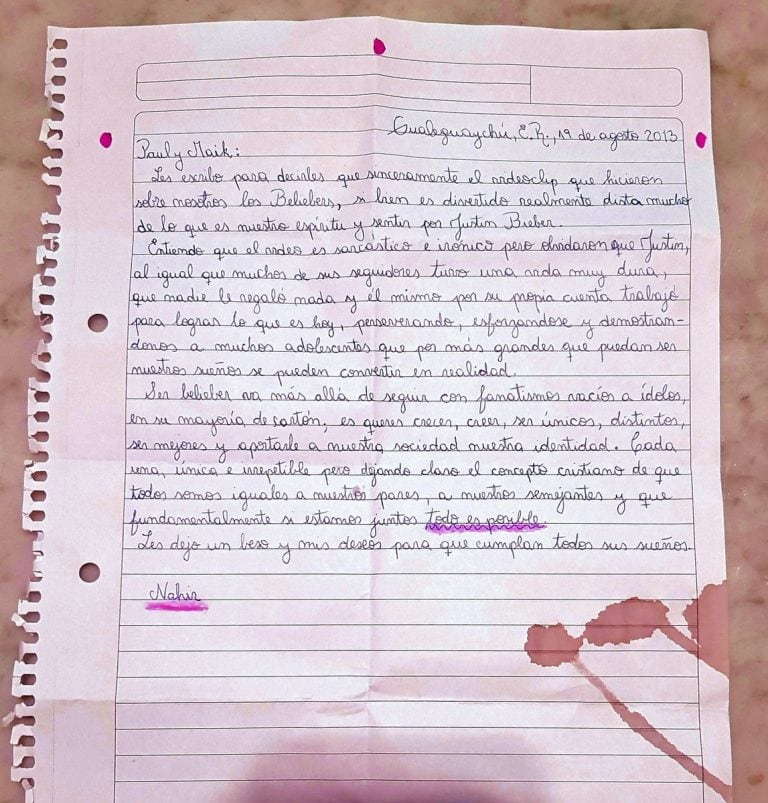 Gualeguaychú, E.R., 19 de agosto 2013
Paul y Maik:
Les escribo para decirles que sinceramente el videoclip que hicieron
sobre nosotros los Beliebers, si bien es divertido realmente dista mucho
de lo que es nuestro espíritu y sentir por Justin Bieber.
Entiendo que el video es sarcástico e irónico pero olvidaron que Justin,
al igual que muchos de sus seguidores tuvo una vida muy dura,
que nadie le regaló nada y él mismo por su propia cuenta trabajó
para lograr lo que es hoy, perseverando, esforzandose y demostran-
donos a muchos adolescentes que por más grandes que puedan ser
nuestros sueños se pueden convertir en realidad.
Ser belieber va más allá de seguir con fanatismos vacíos a ídolos,
en su mayoría de cartón, es querer crecer, creer, ser únicos, distintos,
ser mejores y aportarle a nuestra sociedad nuestra identidad. Cada
una, única e irrepetible pero dejando claro el concepto cristiano de que
todos somos iguales a nuestros pares, a nuestros semejantes y que
fundamentalmente si estamos juntos todo es posible.
Les dejo un beso y mis deseos para que cumplan todos sus sueños.
Nahir